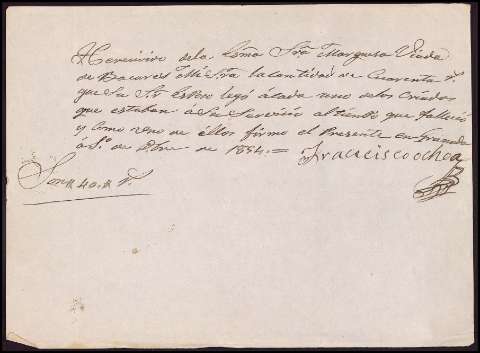 He recivido dela Exma Sra Marquesa Viuda
de Bacares Mi Sra la cantidad de Cuarenta r.
que Su Sr Esposo legó á cada uno delos Criados
que estaban á Su Servicio al tiempo que fallecio
y como uno de ellos firmo el Presente en Granada
á 1º de Dbre de 1854. = Francisco ochoa
Son R 40. R r.